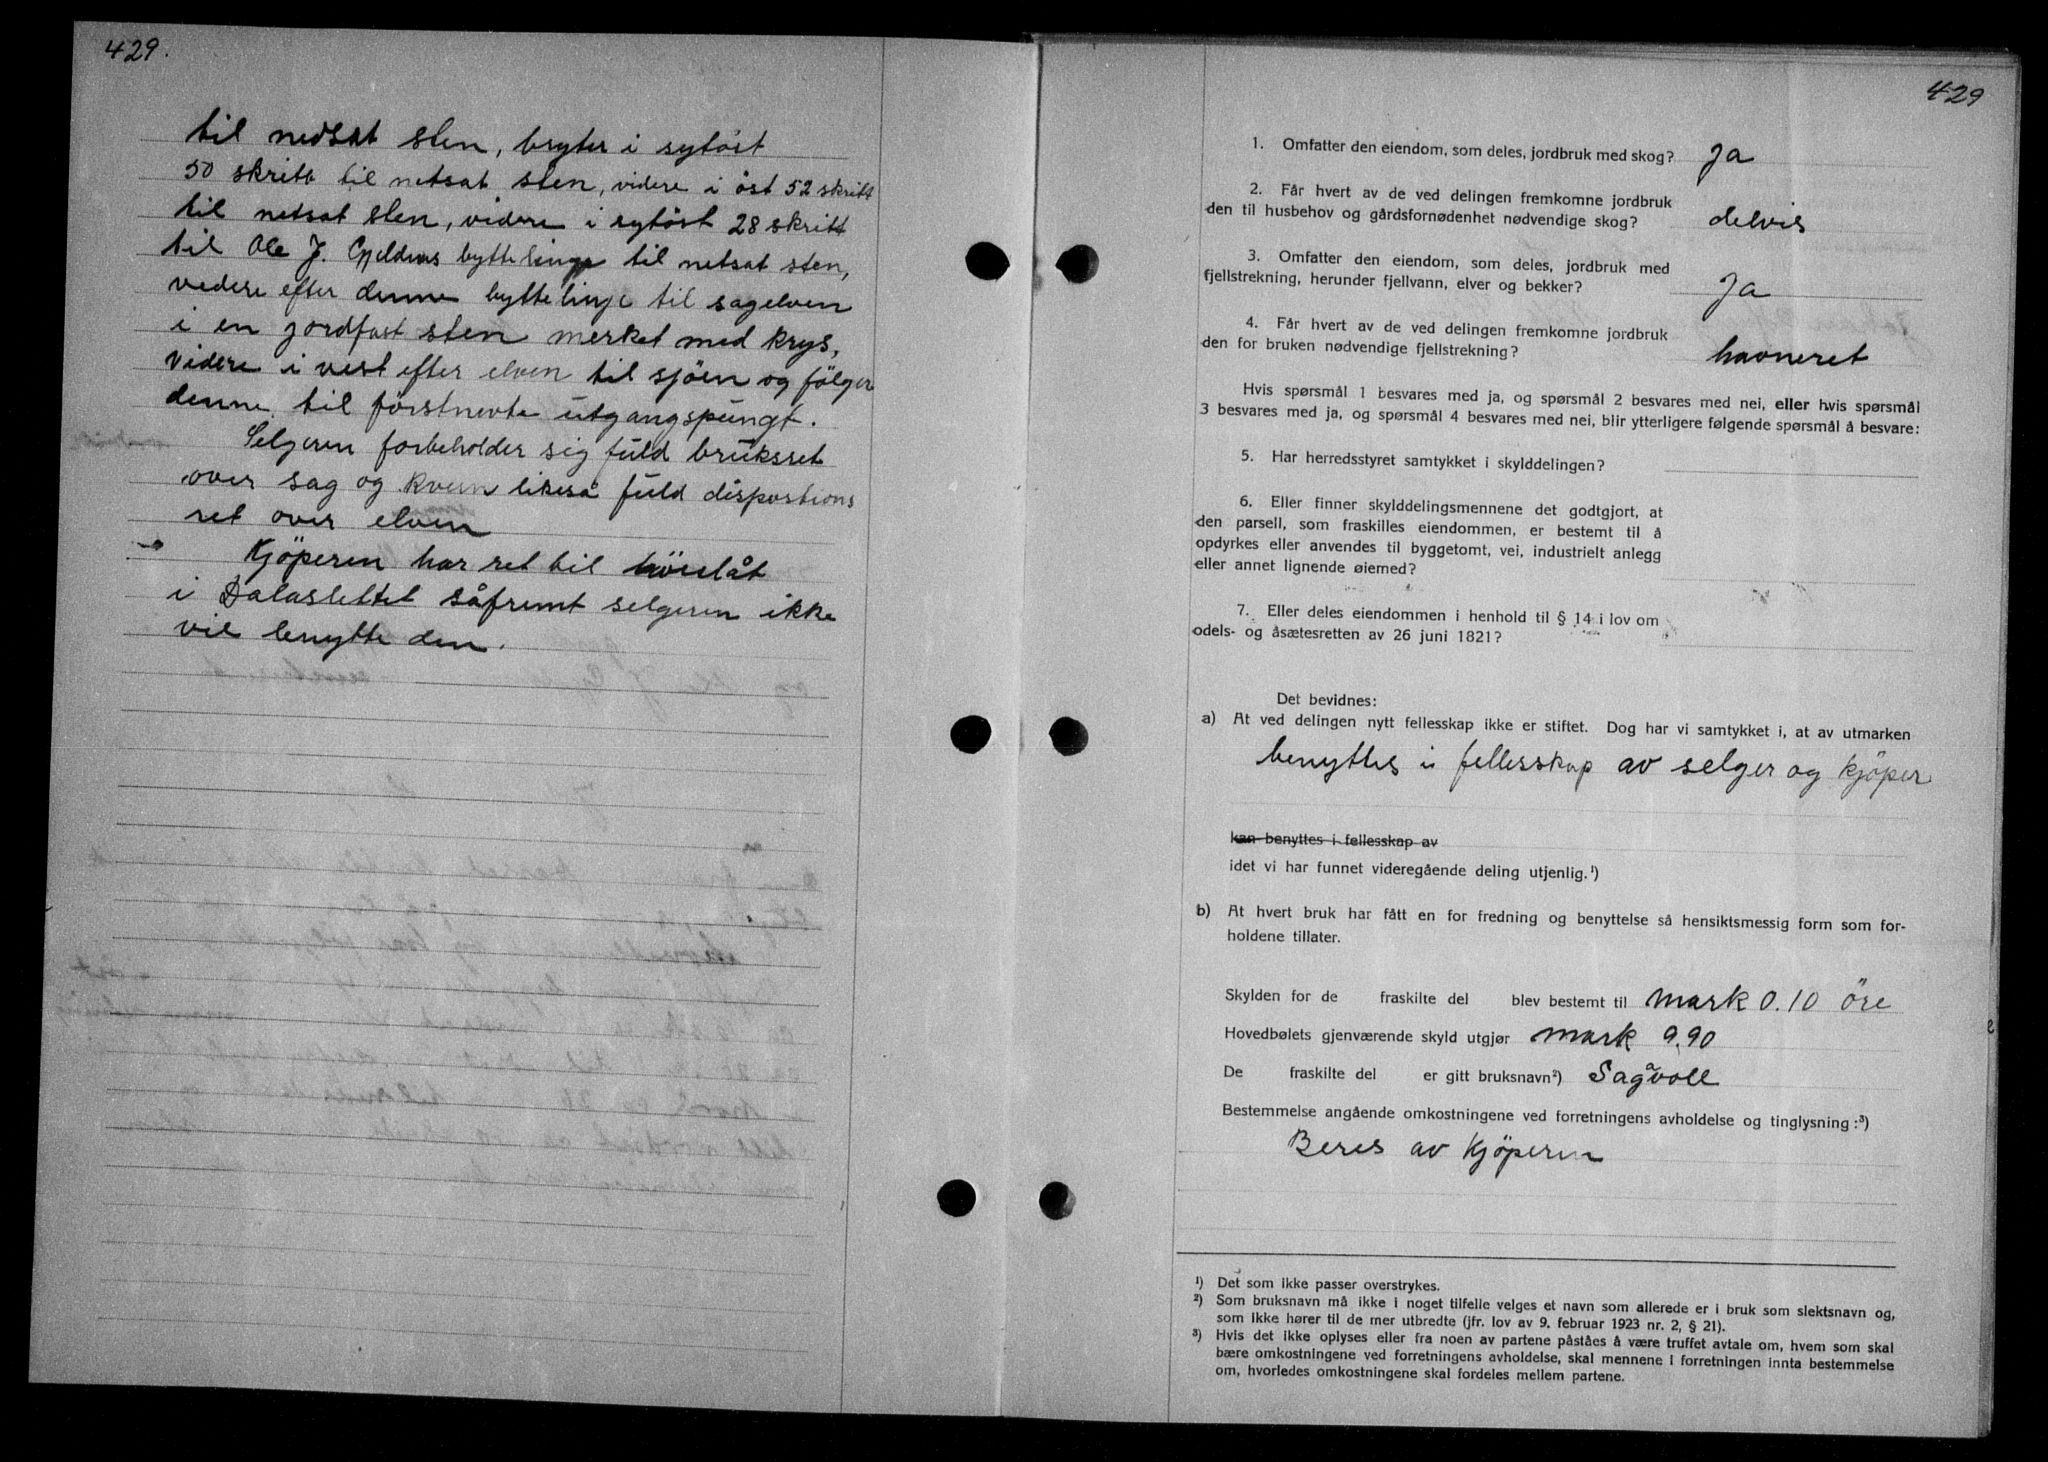 429.
til nedsat sten, bryter i sytöst
50 skritt til netsat sten, videre i öst 52 skritt
til netsat sten, videre i sytöst 28 skritt
til Ole J. Gjeldnes byttelinge til netsat sten,
videre efter denne byttelinje til sagelven
i en jordfast sten merket med krys,
videre i vest efter elven til sjöen og fölger
denne til förstnevte utgangspungt.
Selgeren forbeholder sig fuld bruksret
over sag og kvern likeså fuld dispostions
ret over elven
Kjöperen har ret til höislåt
i Dalaslettet såfremt selgeren ikke
vil benytte den.
429
1. Omfatter den eiendom, som deles, jordbruk med skog? Ja
2. Får hvert av de ved delingen fremkomne jordbruk
den til husbehov og gårdsfornødenhet nødvendige skog? delvis
3. Omfatter den eiendom, som deles, jordbruk med
fjellstrekning, herunder fjellvann, elver og bekker? Ja
4. Får hvert av de ved delingen fremkomne jordbruk
den for bruken nødvendige fjellstrekning? havneret
Hvis spørsmål 1 besvares med ja, og spørsmål 2 besvares med nei, eller hvis spørsmål
3 besvares med ja, og spørsmål 4 besvares med nei, blir ytterligere følgende spørsmål å besvare:
5. Har herredsstyret samtykket i skylddelingen?
6. Eller finner skylddelingsmennene det godtgjort, at
den parsell, som fraskilles eiendommen, er bestemt til å
opdyrkes eller anvendes til byggetomt, vei, industrielt anlegg
eller annet lignende øiemed?
7. Eller deles eiendommen i henhold til § 14 i lov om
odels- og åsætesretten av 26 juni 1821?
Det bevidnes:
a) At ved delingen nytt fellesskap ikke er stiftet. Dog har vi samtykket i, at av utmarken
benyttes i fellesskap av selger og kjöper
kan benyttes i fellesskap av
idet vi har funnet videregående deling utjenlig.¹)
b) At hvert bruk har fått en for fredning og benyttelse så hensiktsmessig form som for-
holdene tillater.
Skylden for de fraskilte del blev bestemt til mark 0.10 öre
Hovedbølets gjenværende skyld utgjør mark 9.90
De fraskilte del er gitt bruksnavn²) Sagvoll
Bestemmelse angående omkostningene ved forretningens avholdelse og tinglysning:³)
Beres av kjöperen
¹) Det som ikke passer overstrykes.
²) Som bruksnavn må ikke i noget tilfelle velges et navn som allerede er i bruk som slektsnavn og,
som ikke hører til de mer utbredte (jfr. lov av 9. februar 1923 nr. 2, § 21).
³) Hvis det ikke oplyses eller fra noen av partene påståes å være truffet avtale om, hvem som skal
bære omkostningene ved forretningens avholdelse, skal mennene i forretningen innta bestemmelse
om, hvorledes omkostningene skal fordeles mellem partene.